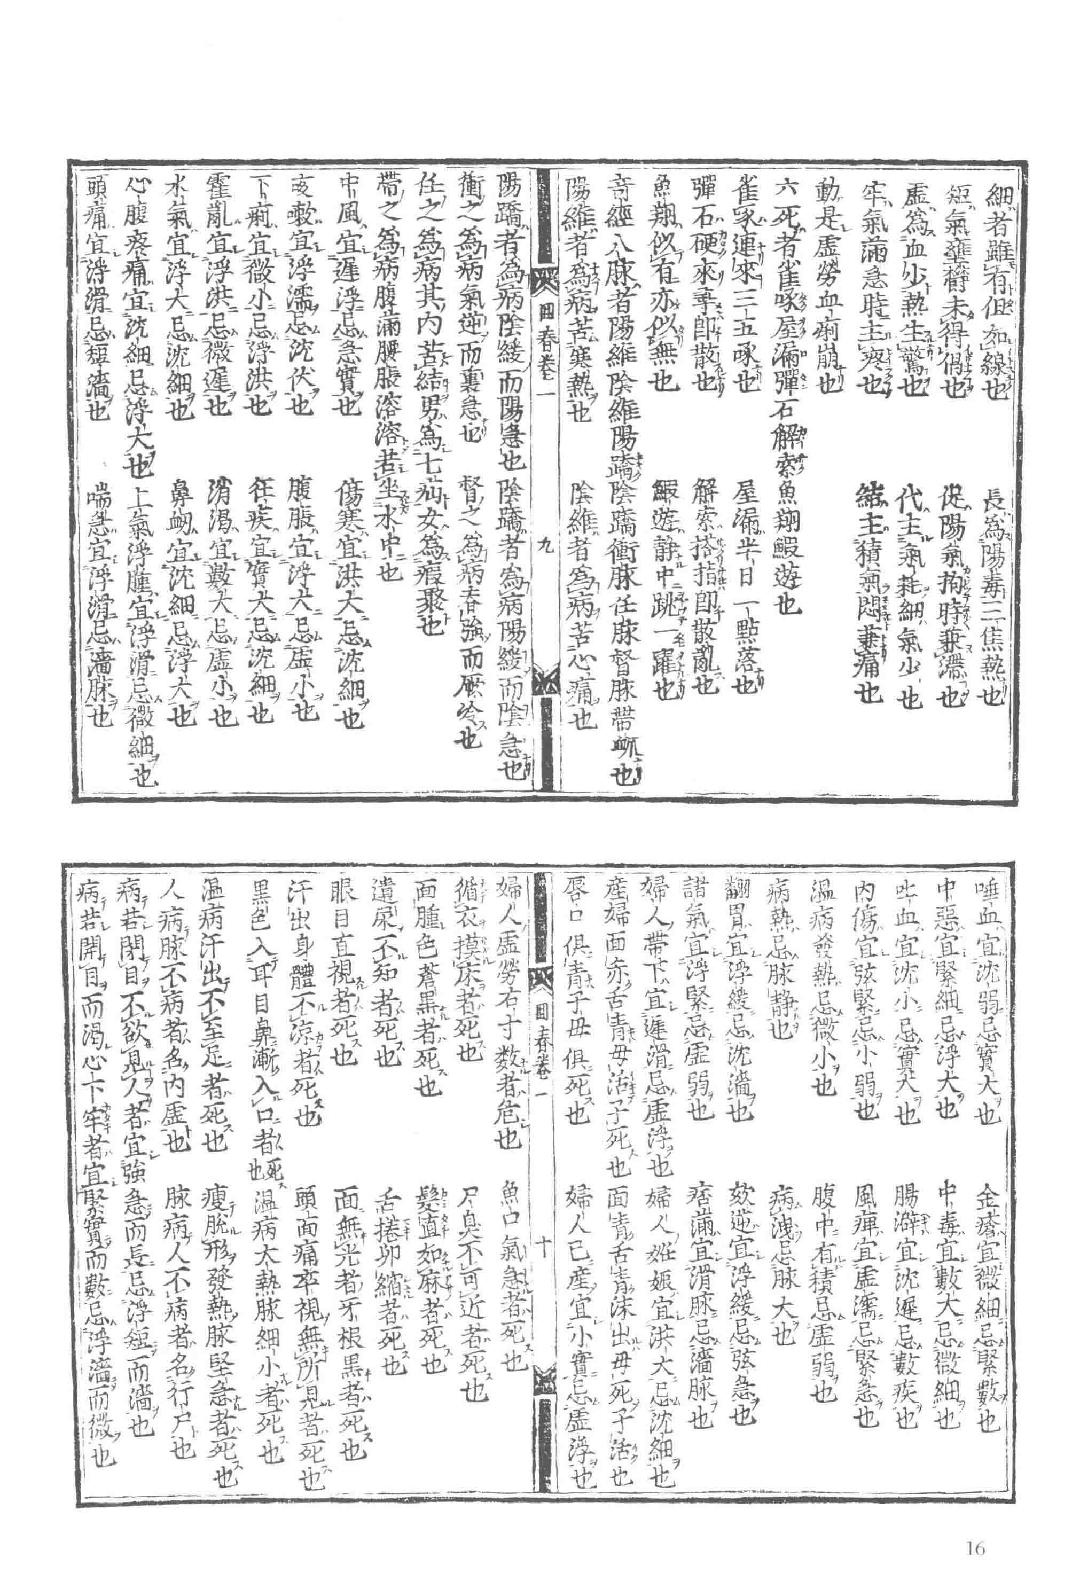 細者雖有但如線也　長為陽毒三焦熱也
短氣壅欝未得倡也　促陽氣拘時兼滯也
虛為血少熱生驚也　代主氣耗細氣少也
牢氣滿急時主疼也　結主積氣悶兼痛也
動是虛勞血痢崩也
六死者雀啄屋漏彈石解索魚翔鰕遊也
雀啄連來三五啄也　屋漏半日一點落也
彈石硬來尋即散也　解索搭指即散亂也
魚翔似有亦似無也　鰕遊靜中跳一躍也
奇經八脉者陽維陰維陽蹻陰蹻衝脉任脉督脉帶脉也
陽維者為病苦寒熱也　陰維者為病苦心痛也
回春卷一　九
陽蹻者為病陰緩而陽急也　陰蹻者為病陽緩而陰急也
衝之為病氣逆而裏急也　督之為病脊強而厥冷也
任之為病其內苦結男為七疝女為瘕聚也
帶之為病腹滿腰脹溶溶若坐水中也
中風宜遲浮忌急實也　傷寒宜洪大忌沈細也
咳嗽宜浮濡忌沈伏也　腹脹宜浮大忌虛小也
下痢宜微小忌浮洪也　狂疾宜實大忌沈細也
霍亂宜浮洪忌微遲也　消渴宜數大忌虛小也
水氣宜浮大忌沈細也　鼻衂宜沈細忌浮大也
心腹疼痛宜沈細忌浮大也　上氣浮腫宜浮滑忌微細也
頭痛宜浮滑忌短濇也　喘急宜浮滑忌濇脉也
唾血宜沈弱忌實大也　金瘡宜微細忌緊數也
中惡宜緊細忌浮大也　中毒宜數大忌微細也
吐血宜沈小忌實大也　腸澼宜沈遲忌數疾也
內傷宜弦緊忌小弱也　風痺宜虛濡忌緊急也
溫病發熱忌微小也　腹中有積忌虛弱也
病熱忌脉靜也　病洩忌脉大也
翻胃宜浮緩忌沈濇也　欬逆宜浮緩忌弦急也
諸氣宜浮緊忌虛弱也　痞滿宜滑脉忌濇脉也
婦人帶下宜遲滑忌虛浮也　婦人妊娠宜洪大忌沈細也
產婦面赤舌青母活子死也　面青舌青沫出母死子活也
唇口俱青子母俱死也　婦人已產宜小實忌虛浮也
回春卷一　十
婦人虛勞右寸數者危也　魚口氣急者死也
循衣摸床者死也　尸臭不可近者死也
面腫色蒼黑者死也　髮直如麻者死也
遺尿不知者死也　舌捲卵縮者死也
眼目直視者死也　面無光者牙根黑者死也
汗出身體不涼者死也　頭面痛卒視無所見者死也
黑色入耳目鼻漸入口者死也　溫病大熱脉細小者死也
溫病汗出不至足者死也　瘦脫形發熱脉堅急者死也
人病脉不病者名內虛也　脉病人不病者名行尸也
病若閉目不欲見人者宜強急而長忌浮短而濇也
病若開目而渴心下牢者宜緊實而數忌浮濇而微也
16